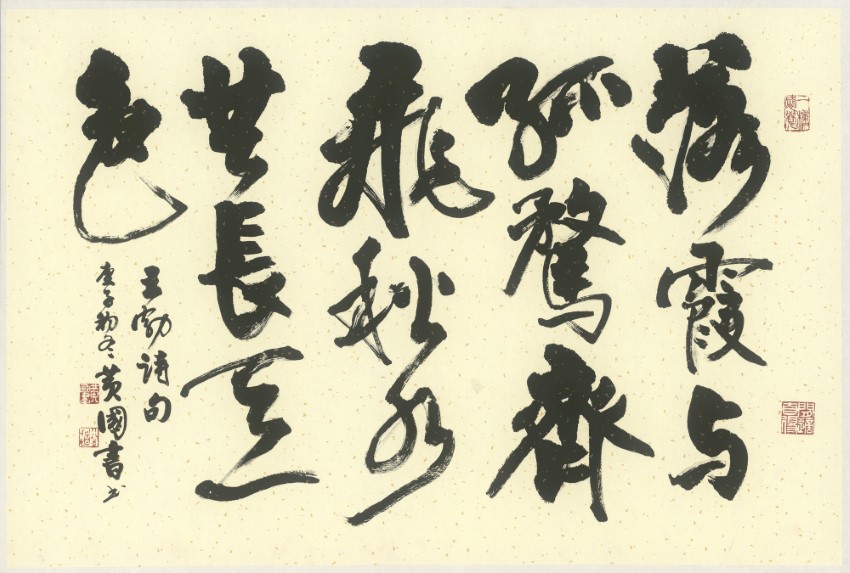 落霞与
孤鶩齊
飛秋水
共長天一
色
王勃詩句
庚子初冬黄國書书